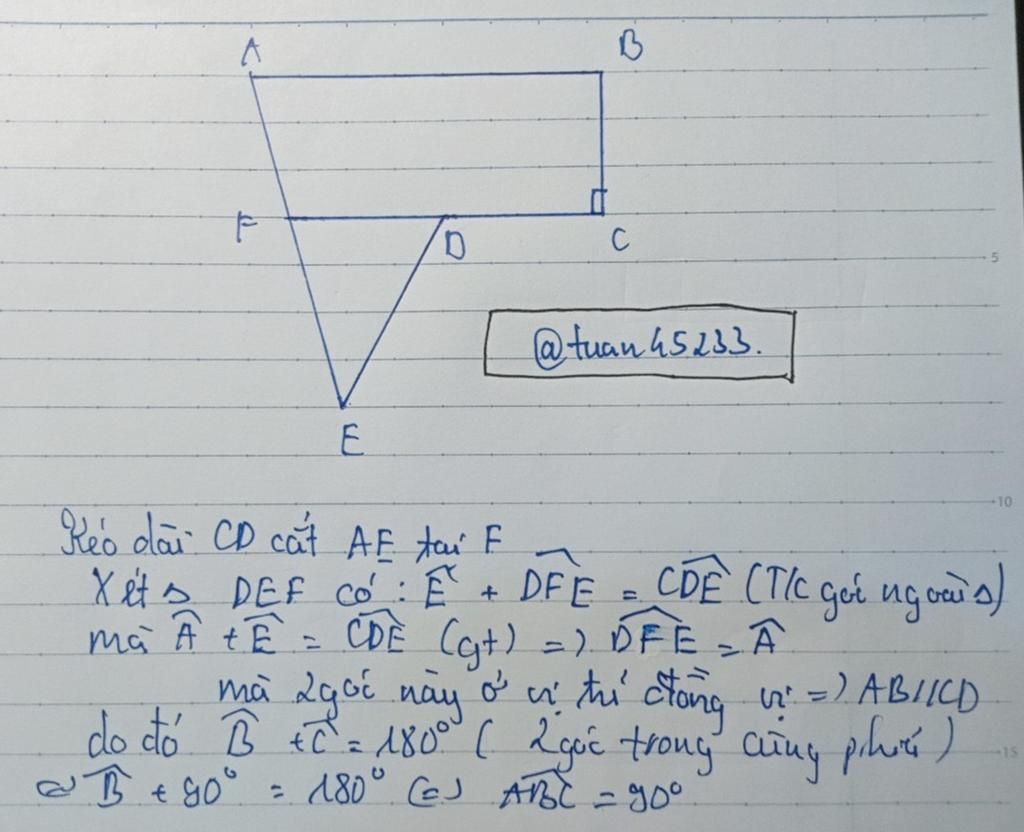 A B
F D C
5
@tuan45233.
E
10
Kéo dài CD cắt AE tại F
Xét △ DEF có : Ê + DFE = CDE (T/c góc ngoài △)
mà Â + Ê = CDE (gt) => DFE = Â
mà 2 góc này ở vị trí đồng vị => AB//CD
do đó B̂ + Ĉ = 180° ( 2 góc trong cùng phía )
15
B̂ + 90° = 180° (=) ABC = 90°